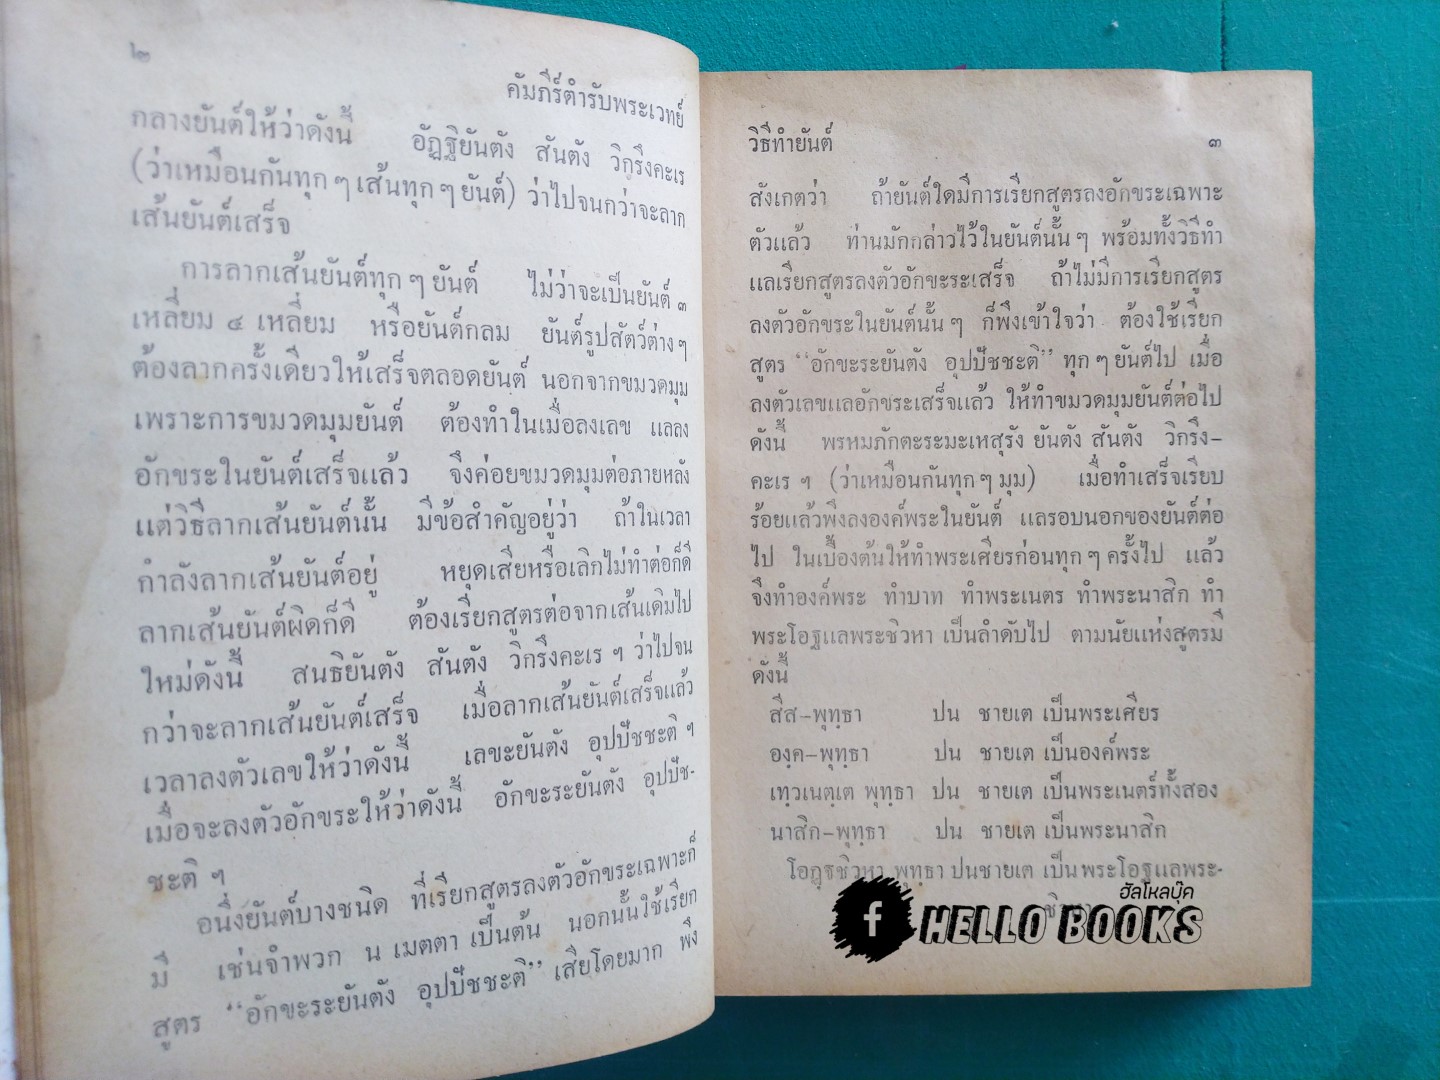 ๒
คัมภีร์ตำรับพระเวทย์
กลางยันต์ให้ว่าดังนี้ อัฏฐิยันตัง สันตัง วิกฺรึงคะเร
(ว่าเหมือนกันทุก ๆ เส้นทุก ๆ ยันต์) ว่าไปจนกว่าจะลาก
เส้นยันต์เสร็จ
การลากเส้นยันต์ทุก ๆ ยันต์ ไม่ว่าจะเป็นยันต์ ๓
เหลี่ยม ๔ เหลี่ยม หรือยันต์กลม ยันต์รูปสัตว์ต่าง ๆ
ต้องลากครั้งเดียวให้เสร็จตลอดยันต์ นอกจากขมวดมุม
เพราะการขมวดมุมยันต์ ต้องทำในเมื่อลงเลข แลลง
อักขระในยันต์เสร็จแล้ว จึงค่อยขมวดมุมต่อภายหลัง
แต่วิธีลากเส้นยันต์นั้น มีข้อสำคัญอยู่ว่า ถ้าในเวลา
กำลังลากเส้นยันต์อยู่ หยุดเสียหรือเลิกไม่ทำต่อก็ดี
ลากเส้นยันต์ผิดก็ดี ต้องเรียกสูตรต่อจากเส้นเดิมไป
ใหม่ดังนี้ สนธิยันตัง สันตัง วิกรึงคะเร ฯ ว่าไปจน
กว่าจะลากเส้นยันต์เสร็จ เมื่อลากเส้นยันต์เสร็จแล้ว
เวลาลงตัวเลขให้ว่าดังนี้ เลขะยันตัง อุปปัชชะติ ฯ
เมื่อจะลงตัวอักขระให้ว่าดังนี้ อักขะระยันตัง อุปปัช-
ชะติ ฯ
อนึ่งยันต์บางชนิด ที่เรียกสูตรลงตัวอักขระเฉพาะก็
มี เช่นจำพวก น เมตตา เป็นต้น นอกนั้นใช้เรียก
สูตร “อักขะระยันตัง อุปปัชชะติ” เสียโดยมาก พึง
วิธีทำยันต์ ๓
สังเกตว่า ถ้ายันต์ใดมีการเรียกสูตรลงอักขระเฉพาะ
ตัวแล้ว ท่านมักกล่าวไว้ในยันต์นั้น ๆ พร้อมทั้งวิธีทำ
แลเรียกสูตรลงตัวอักขะระเสร็จ ถ้าไม่มีการเรียกสูตร
ลงตัวอักขระในยันต์นั้น ๆ ก็พึงเข้าใจว่า ต้องใช้เรียก
สูตร “อักขะระยันตัง อุปปัชชะติ” ทุก ๆ ยันต์ไป เมื่อ
ลงตัวเลขแลอักขระเสร็จแล้ว ให้ทำขมวดมุมยันต์ต่อไป
ดังนี้ พรหมภักตะระมะเหสุรัง ยันตัง สันตัง วิกรึง-
คะเร ฯ (ว่าเหมือนกันทุก ๆ มุม) เมื่อทำเสร็จเรียบ
ร้อยแล้วพึงลงองค์พระในยันต์ แลรอบนอกของยันต์ต่อ
ไป ในเบื้องต้นให้ทำพระเศียรก่อนทุก ๆ ครั้งไป แล้ว
จึงทำองค์พระ ทำบาท ทำพระเนตร ทำพระนาสิก ทำ
พระโอฐแลพระชิวหา เป็นลำดับไป ตามนัยแห่งสูตรมี
ดังนี้
สีส-พุทฺธา ปน ชายเต เป็นพระเศียร
องฺค-พุทฺธา ปน ชายเต เป็นองค์พระ
เทฺวเนตฺเต พุทฺธา ปน ชายเต เป็นพระเนตร์ทั้งสอง
นาสิก-พุทฺธา ปน ชายเต เป็นพระนาสิก
โอฏฺฐชิวฺหา พุทฺธา ปนชายเต เป็นพระโอฐแลพระ-
ฮัลโหลบุ๊ค
f HELLO BOOKS